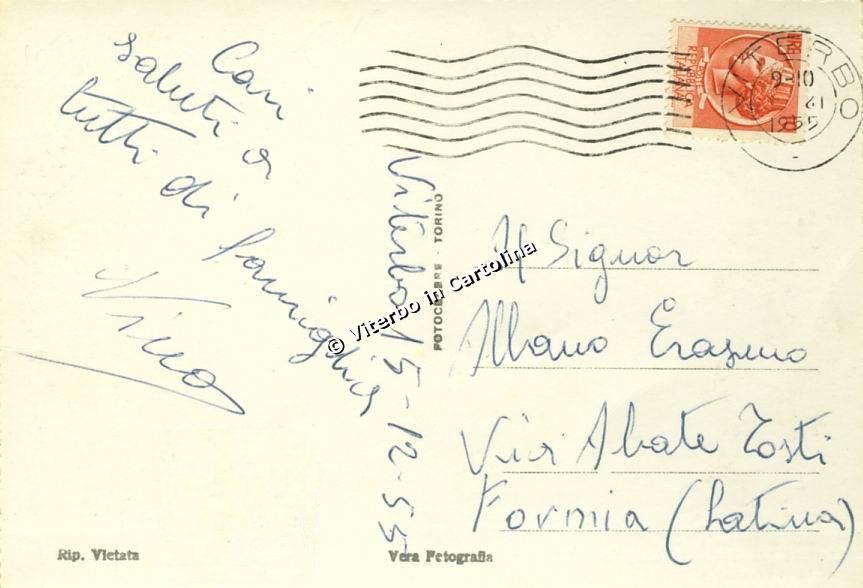 Cari
saluti a
tutti di famiglia
Nino
Viterbo 15-12-55
FOTOCELERE · TORINO
© Viterbo in Cartolina
VITERBO
9-10
1955
Signor
Albano Erasmo
Via Abate Tosti
Formia (Latina)
Rip. Vietata
Vera Fotografia